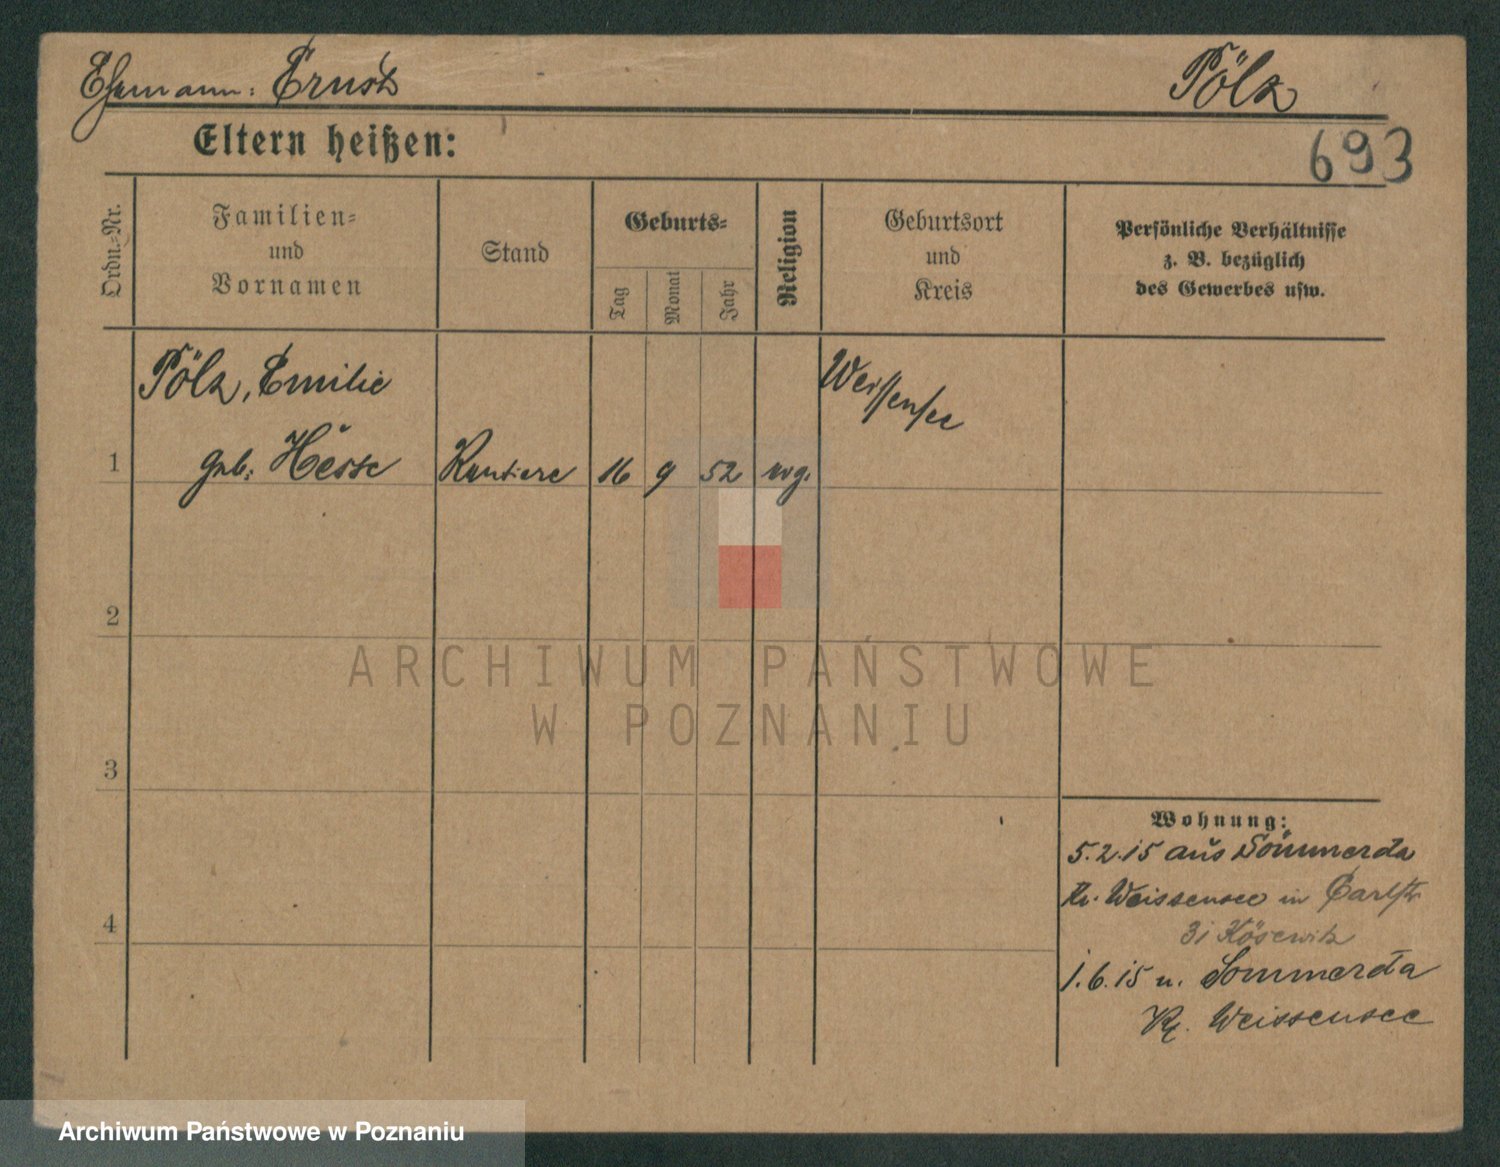 Ehemann: Ernst
Pölz
Eltern heißen:
693
Ordn.-Nr.
Familien-
und
Vornamen
Stand
Geburts-
Tag
Monat
Jahr
Religion
Geburtsort
und
Kreis
Persönliche Verhältnisse
z. B. bezüglich
des Gewerbes usw.
Pölz, Emilie
Weissensee
1
geb: Hesse
Rentiere
16
9
52
evg.
2
ARCHIWUM PAŃSTWOWE
W POZNANIU
3
Wohnung:
5.2.15 aus Sömmerda
Kr. Weissensee in Carlstr
4
31 Kösewitz
1.6.15 n. Sommerda
Kr. Weissensee
Archiwum Państwowe w Poznaniu